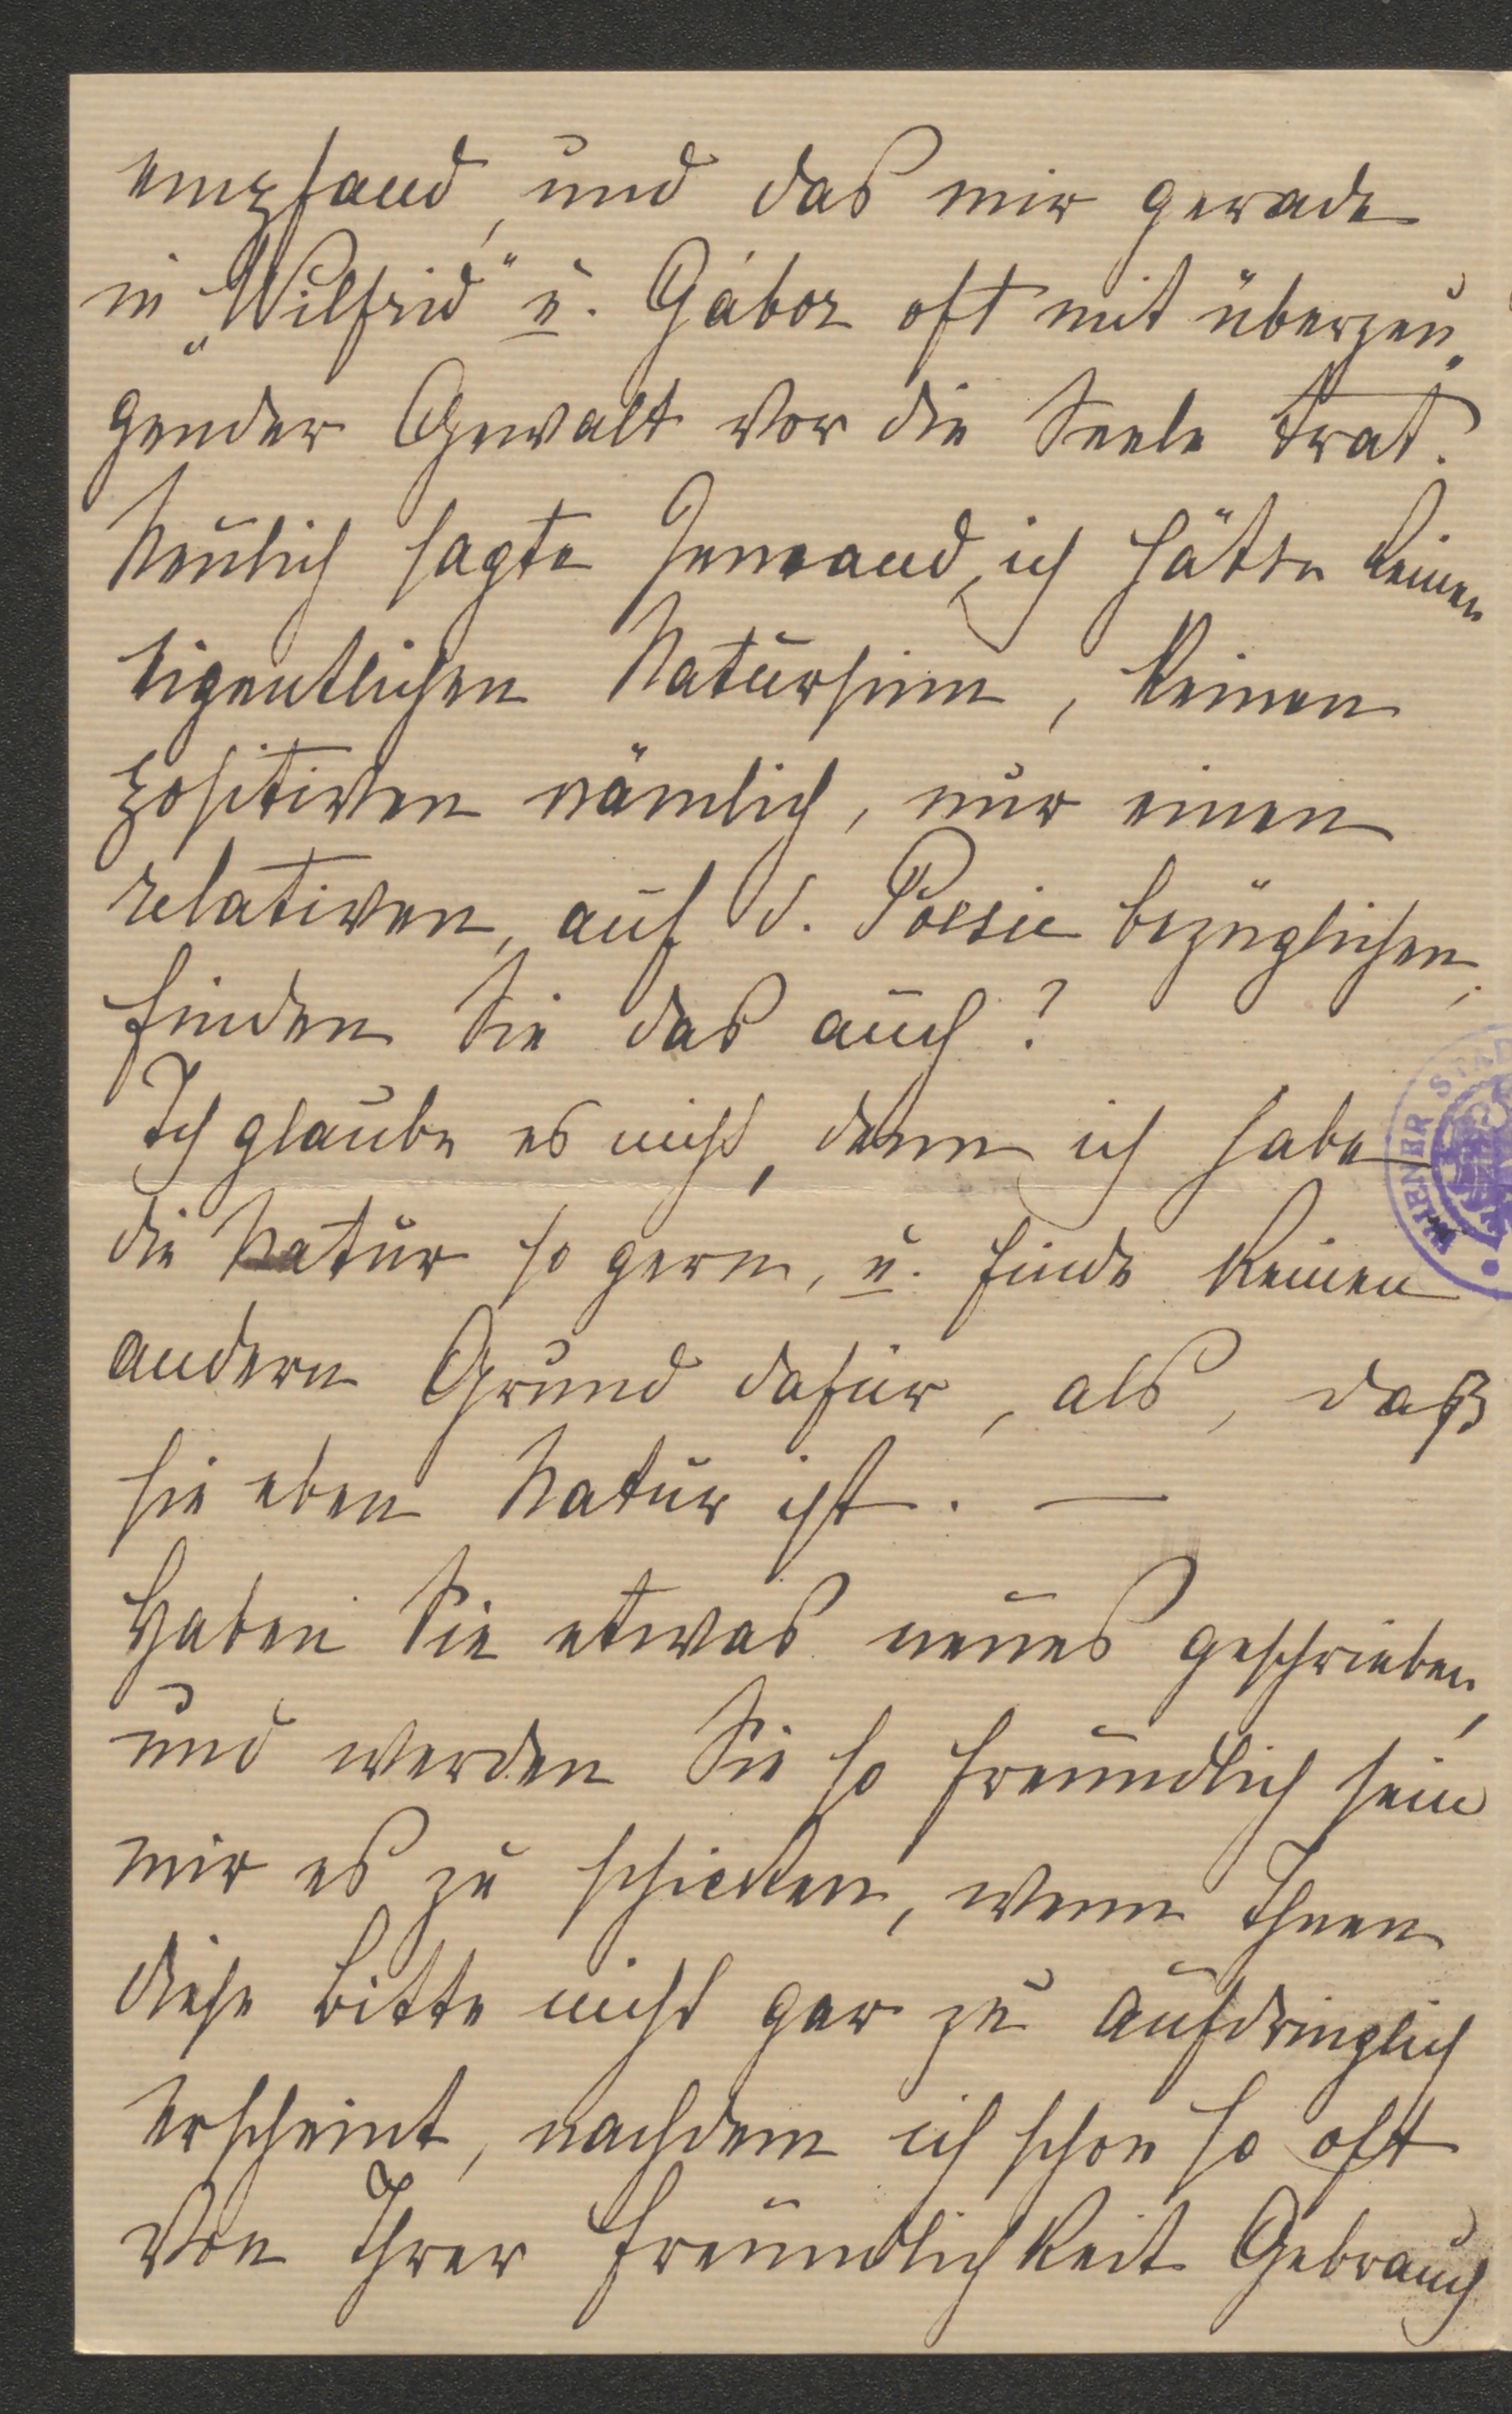 empfand, und das mir gerade
in „Wilfrid“ u. Gábor oft mit überzeu„
gender Gewalt vor die Seele trat.
Neulich sagte Jemand, ich hätte keinen
eigentlichen Natursinn, keinen
positiven nämlich, nur einen
relativen, auf d. Poesie bezüglichen,
finden Sie das auch?
Ich glaube es nicht, denn ich habe
die Natur so gern, u. finde keinen
andern Grund dafür, als, daß
sie eben Natur ist. —
Haben Sie etwas neues geschrieben,
und werden Sie so freundlich sein
mir es zu schicken, wenn Ihnen
diese Bitte nicht gar zu aufdringlich
erscheint, nachdem ich schon so oft
von Ihrer Freundlichkeit Gebrauch